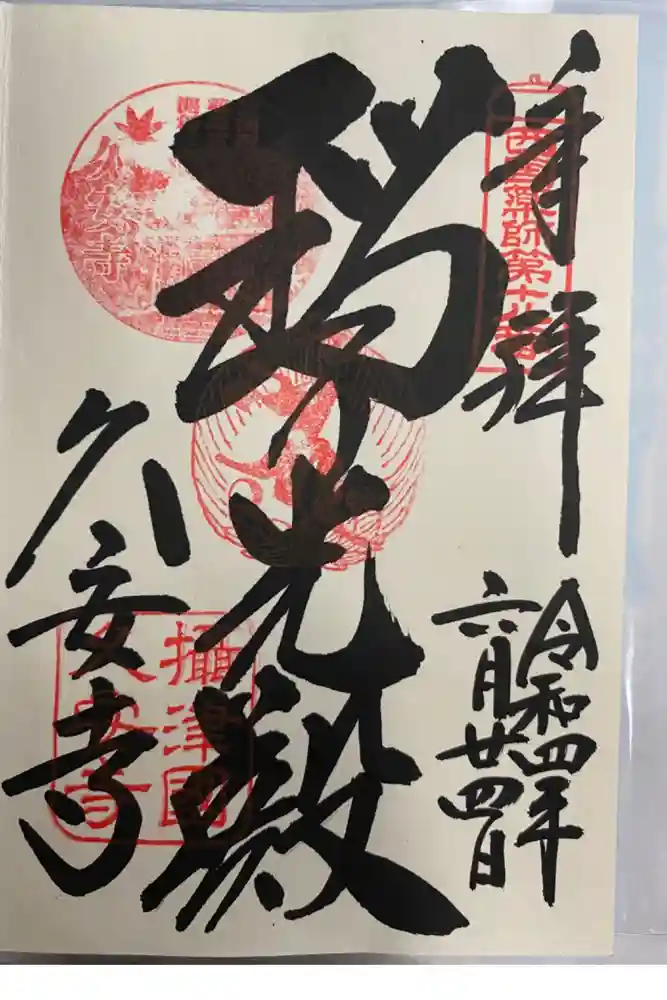 奉拝
西国薬師第十八番
令和四年
六月廿四日
瑠璃光殿
久安寺
久安寺
攝津國
久安寺